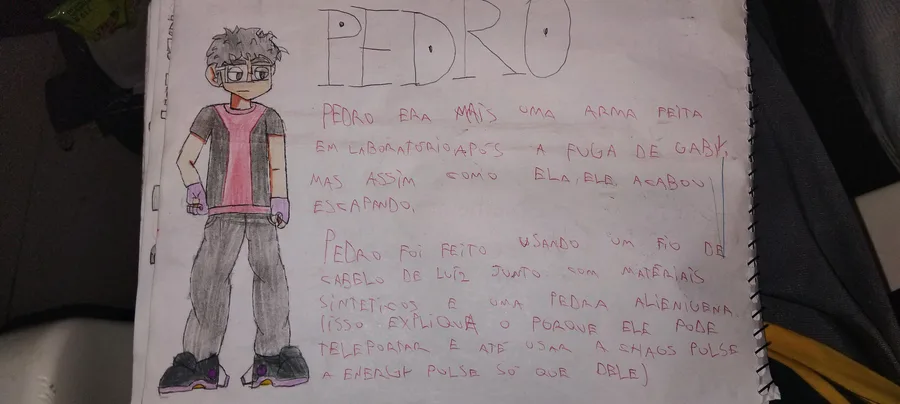 PEDRO
PEDRO ERA MAIS UMA ARMA FEITA
EM LABORATORIO APÓS A FUGA DE GABY,
MAS ASSIM COMO ELA, ELE ACABOU
ESCAPANDO.
PEDRO FOI FEITO USANDO UM FIO DE
CABELO DE LUÍZ JUNTO COM MATERIAIS
SINTETICOS E UMA PEDRA ALIENIGENA
(ISSO EXPLIQUE O PORQUE ELE PODE
TELEPORTAR E ATÉ USAR A CHAOS PULSE
A ENERGY PULSE SÓ QUE DELE)